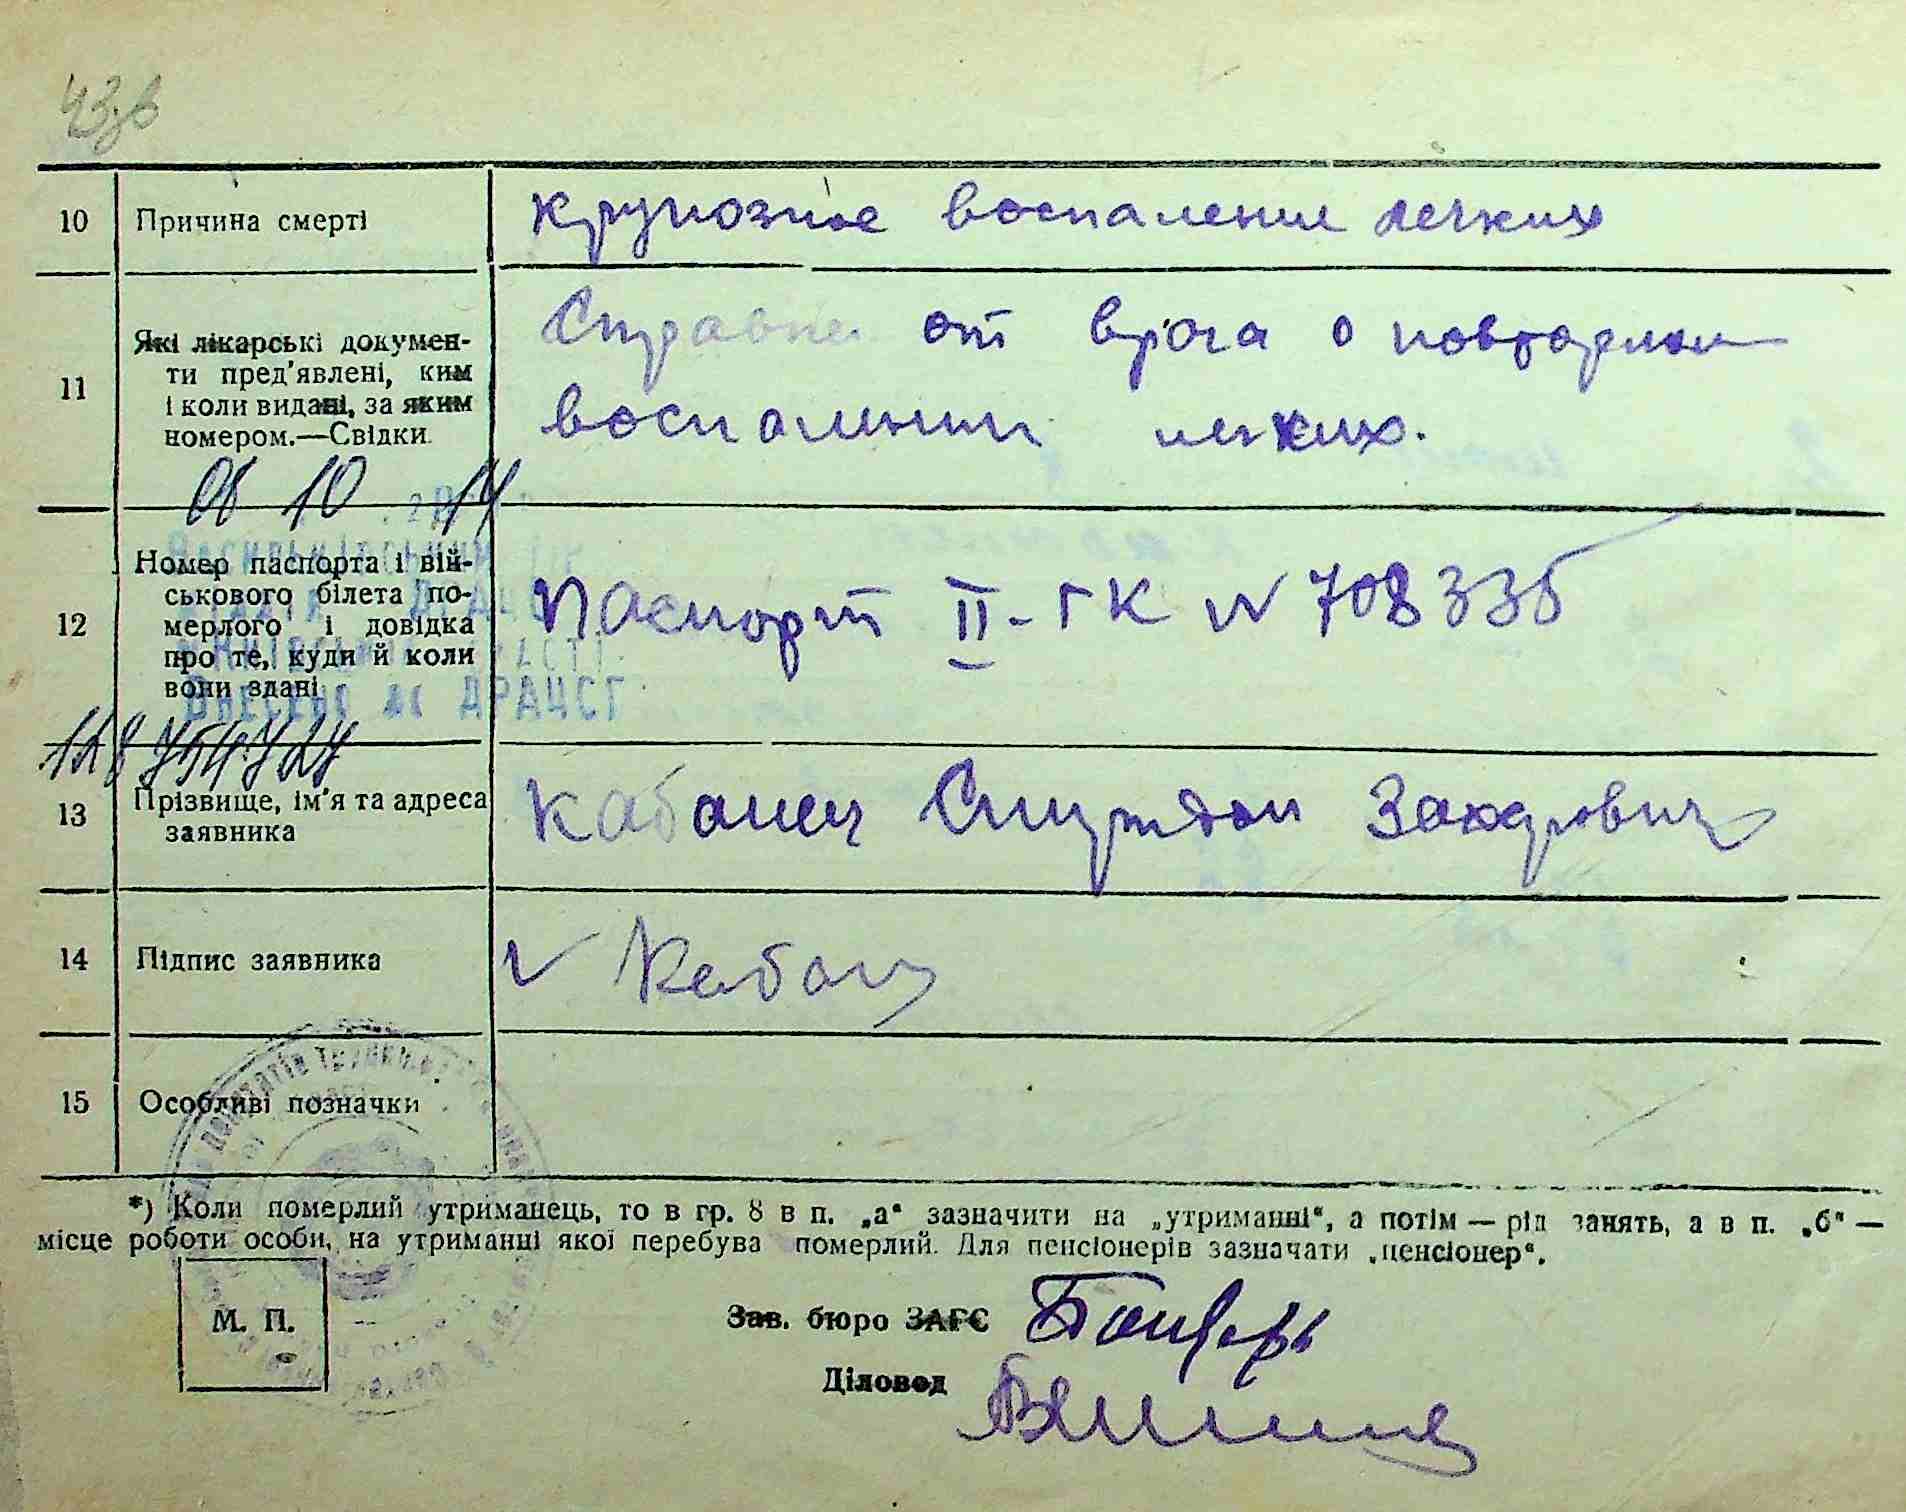 43зв
10 Причина смерті крупозное воспаление легких
11 Які лікарські докумен-
ти пред'явлені, ким
і коли видані, за яким
номером.—Свідки.
Справка от врача о повторном
воспалении легких.
08 10 14
12 Номер паспорта і вій-
ськового білета по-
мерлого і довідка
про те, куди й коли
вони здані
Паспорт II-ГК N 708335
Внесено до ДРАЦСГ
13 Прізвище, ім'я та адреса
заявника
Кабанец Спиридон Захарович
14 Підпис заявника Кабанец
15 Особливі позначки
*) Коли померлий утриманець, то в гр. 8 в п. „а“ зазначити на „утриманні“, а потім — рід занять, а в п. „б“ —
місце роботи особи, на утриманні якої перебува померлий. Для пенсіонерів зазначати „пенсіонер“.
М. П.
Зав. бюро ЗАГС Бондарь
Діловод